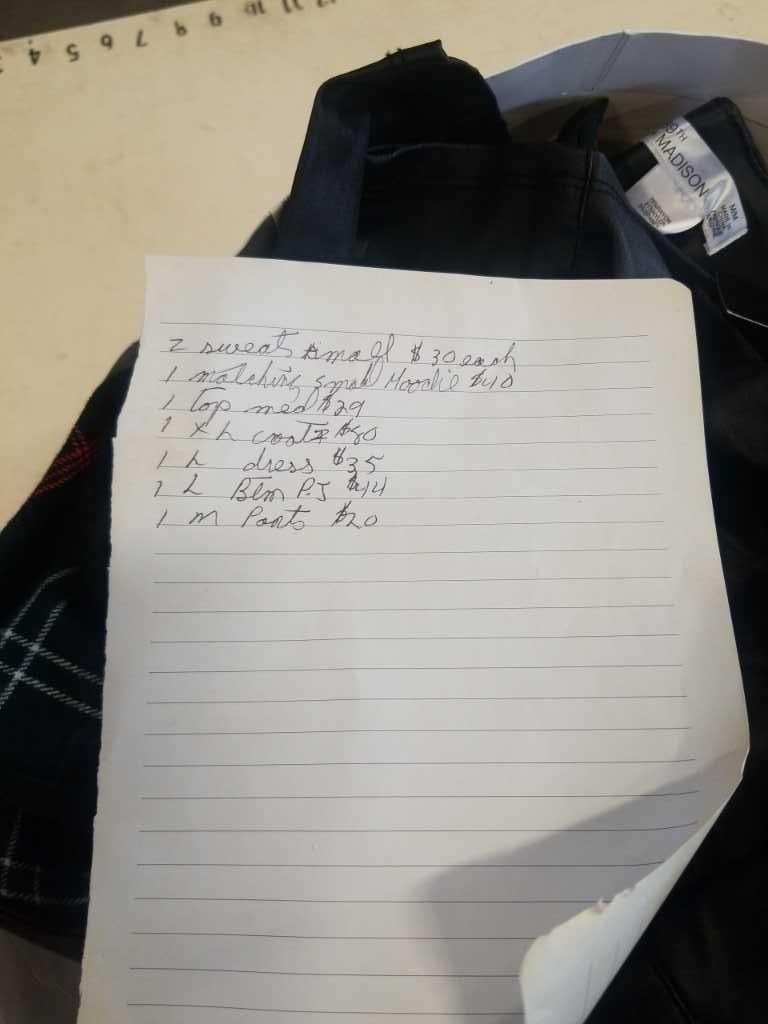 12 11 10 9 8 7 6 5 4
9TH
MADISON
MM
2 sweats small $30 each
1 matching small Hoodie $40
1 top med $29
1 XL coat $80
1 L dress $35
1 L Btm P.J $44
1 M Pants $20